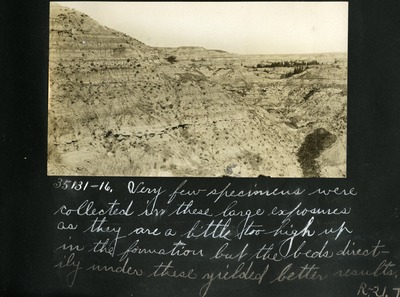 35131-16. Very few specimens were
collected in these large exposures
as they are a little too high up
in the formation but the beds direct-
ily under these yielded better results.
R-21.